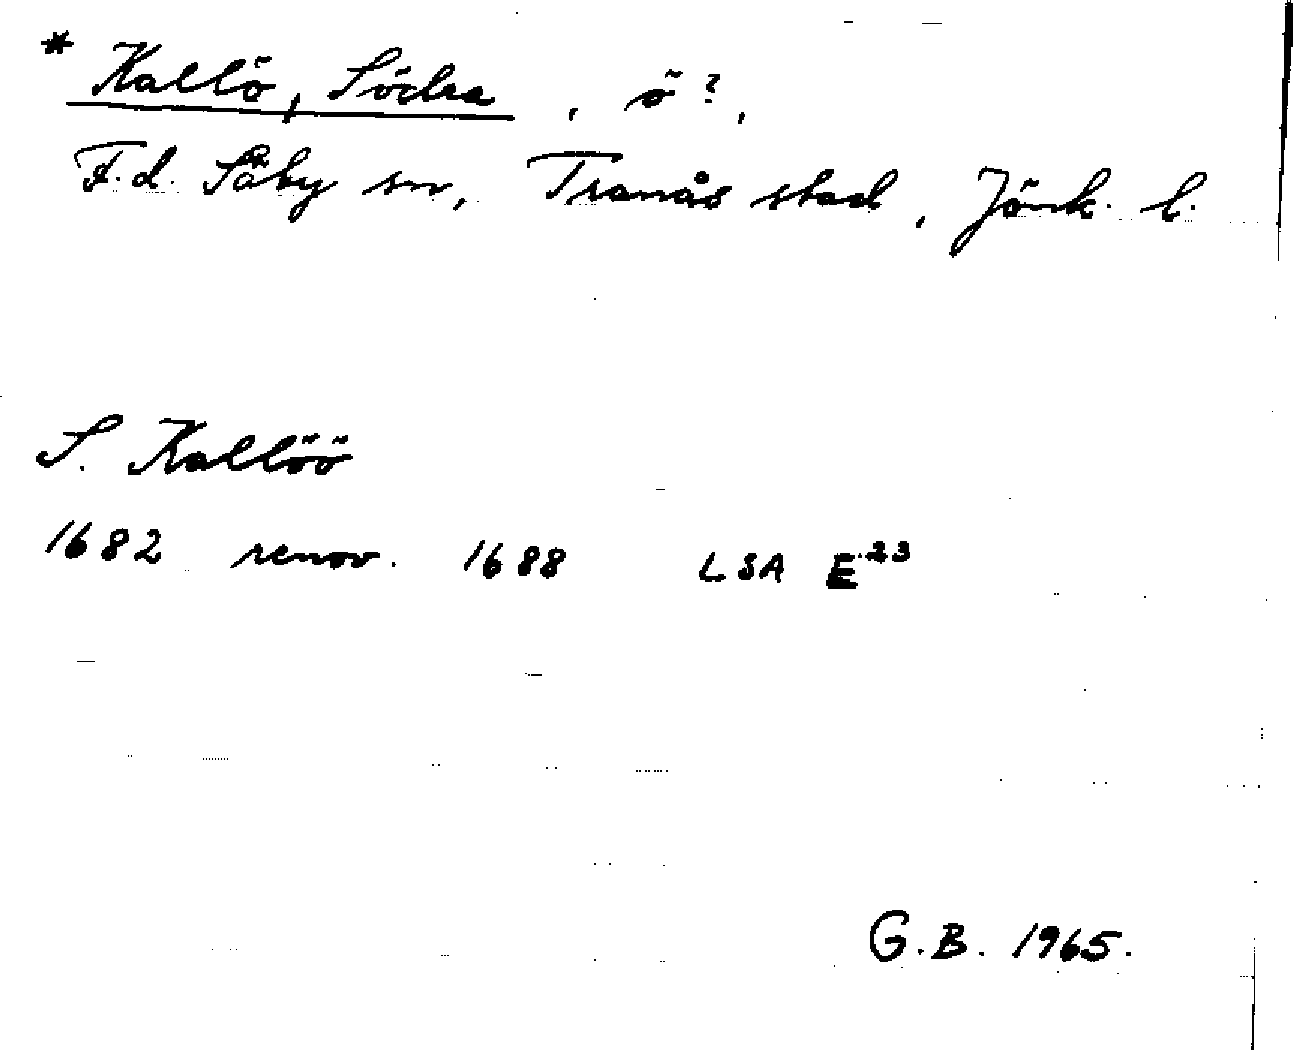 * Kallö, Södra, ö?,
F.d. Säby sn, Tranås stad, Jönk. l.
S. Kallöö
1682 renov. 1688 LSA E23
G.B. 1965.